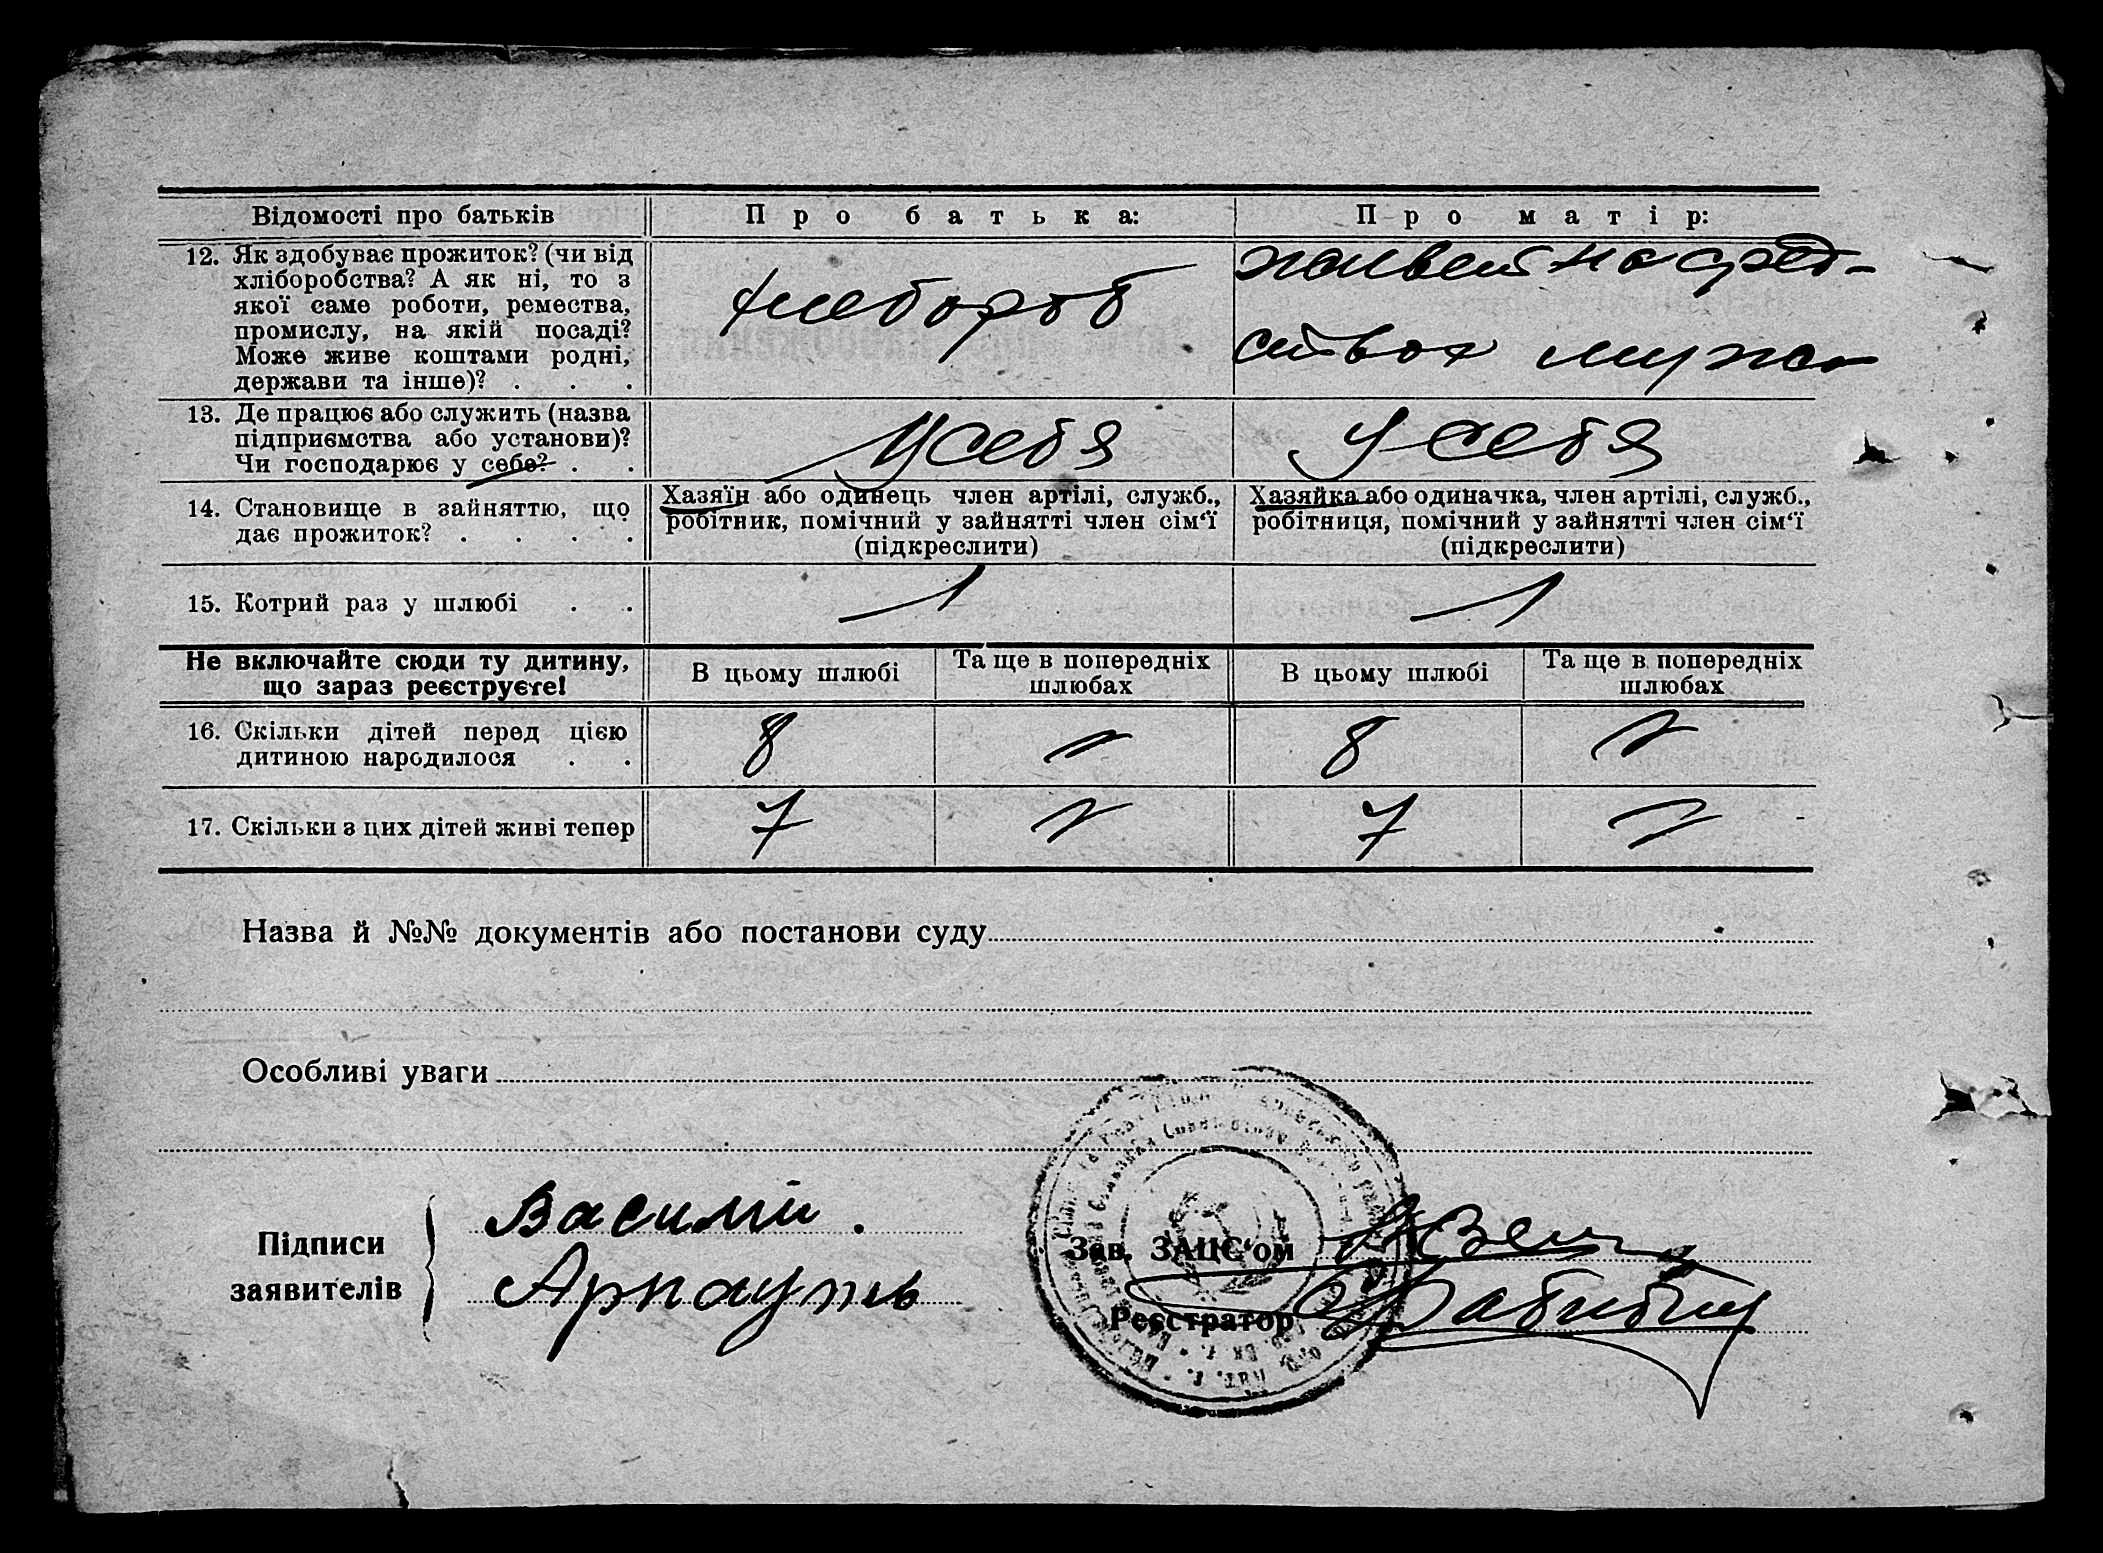 Відомості про батьків
Про батька:
Про матір:
12. Як здобуває прожиток? (чи від
хліборобства? А як ні, то з
якої саме роботи, ремества,
промислу, на якій посаді?
Може живе коштами родні,
держави та інше)? . . .
хлебороб
живет на сред-
ствах мужа
13. Де працює або служить (назва
підприємства або установи)?
Чи господарює у себе? . .
У себя
У себя
14. Становище в зайняттю, що
дає прожиток? . . . .
Хазяїн або одинець член артілі, служб.,
робітник, помічний у зайнятті член сім'ї
(підкреслити)
Хазяйка або одиначка, член артілі, служб.,
робітниця, помічний у зайнятті член сім'ї
(підкреслити)
15. Котрий раз у шлюбі . .
1
1
Не включайте сюди ту дитину,
що зараз реєструєте!
В цьому шлюбі
Та ще в попередніх
шлюбах
В цьому шлюбі
Та ще в попередніх
шлюбах
16. Скільки дітей перед цією
дитиною народилося . .
8
8
17. Скільки з цих дітей живі тепер
7
7
Назва й №№ документів або постанови суду
Особливі уваги
Підписи
заявителів
Василий.
Арнаутъ
Зав. ЗАЦС'ом
Реєстратор